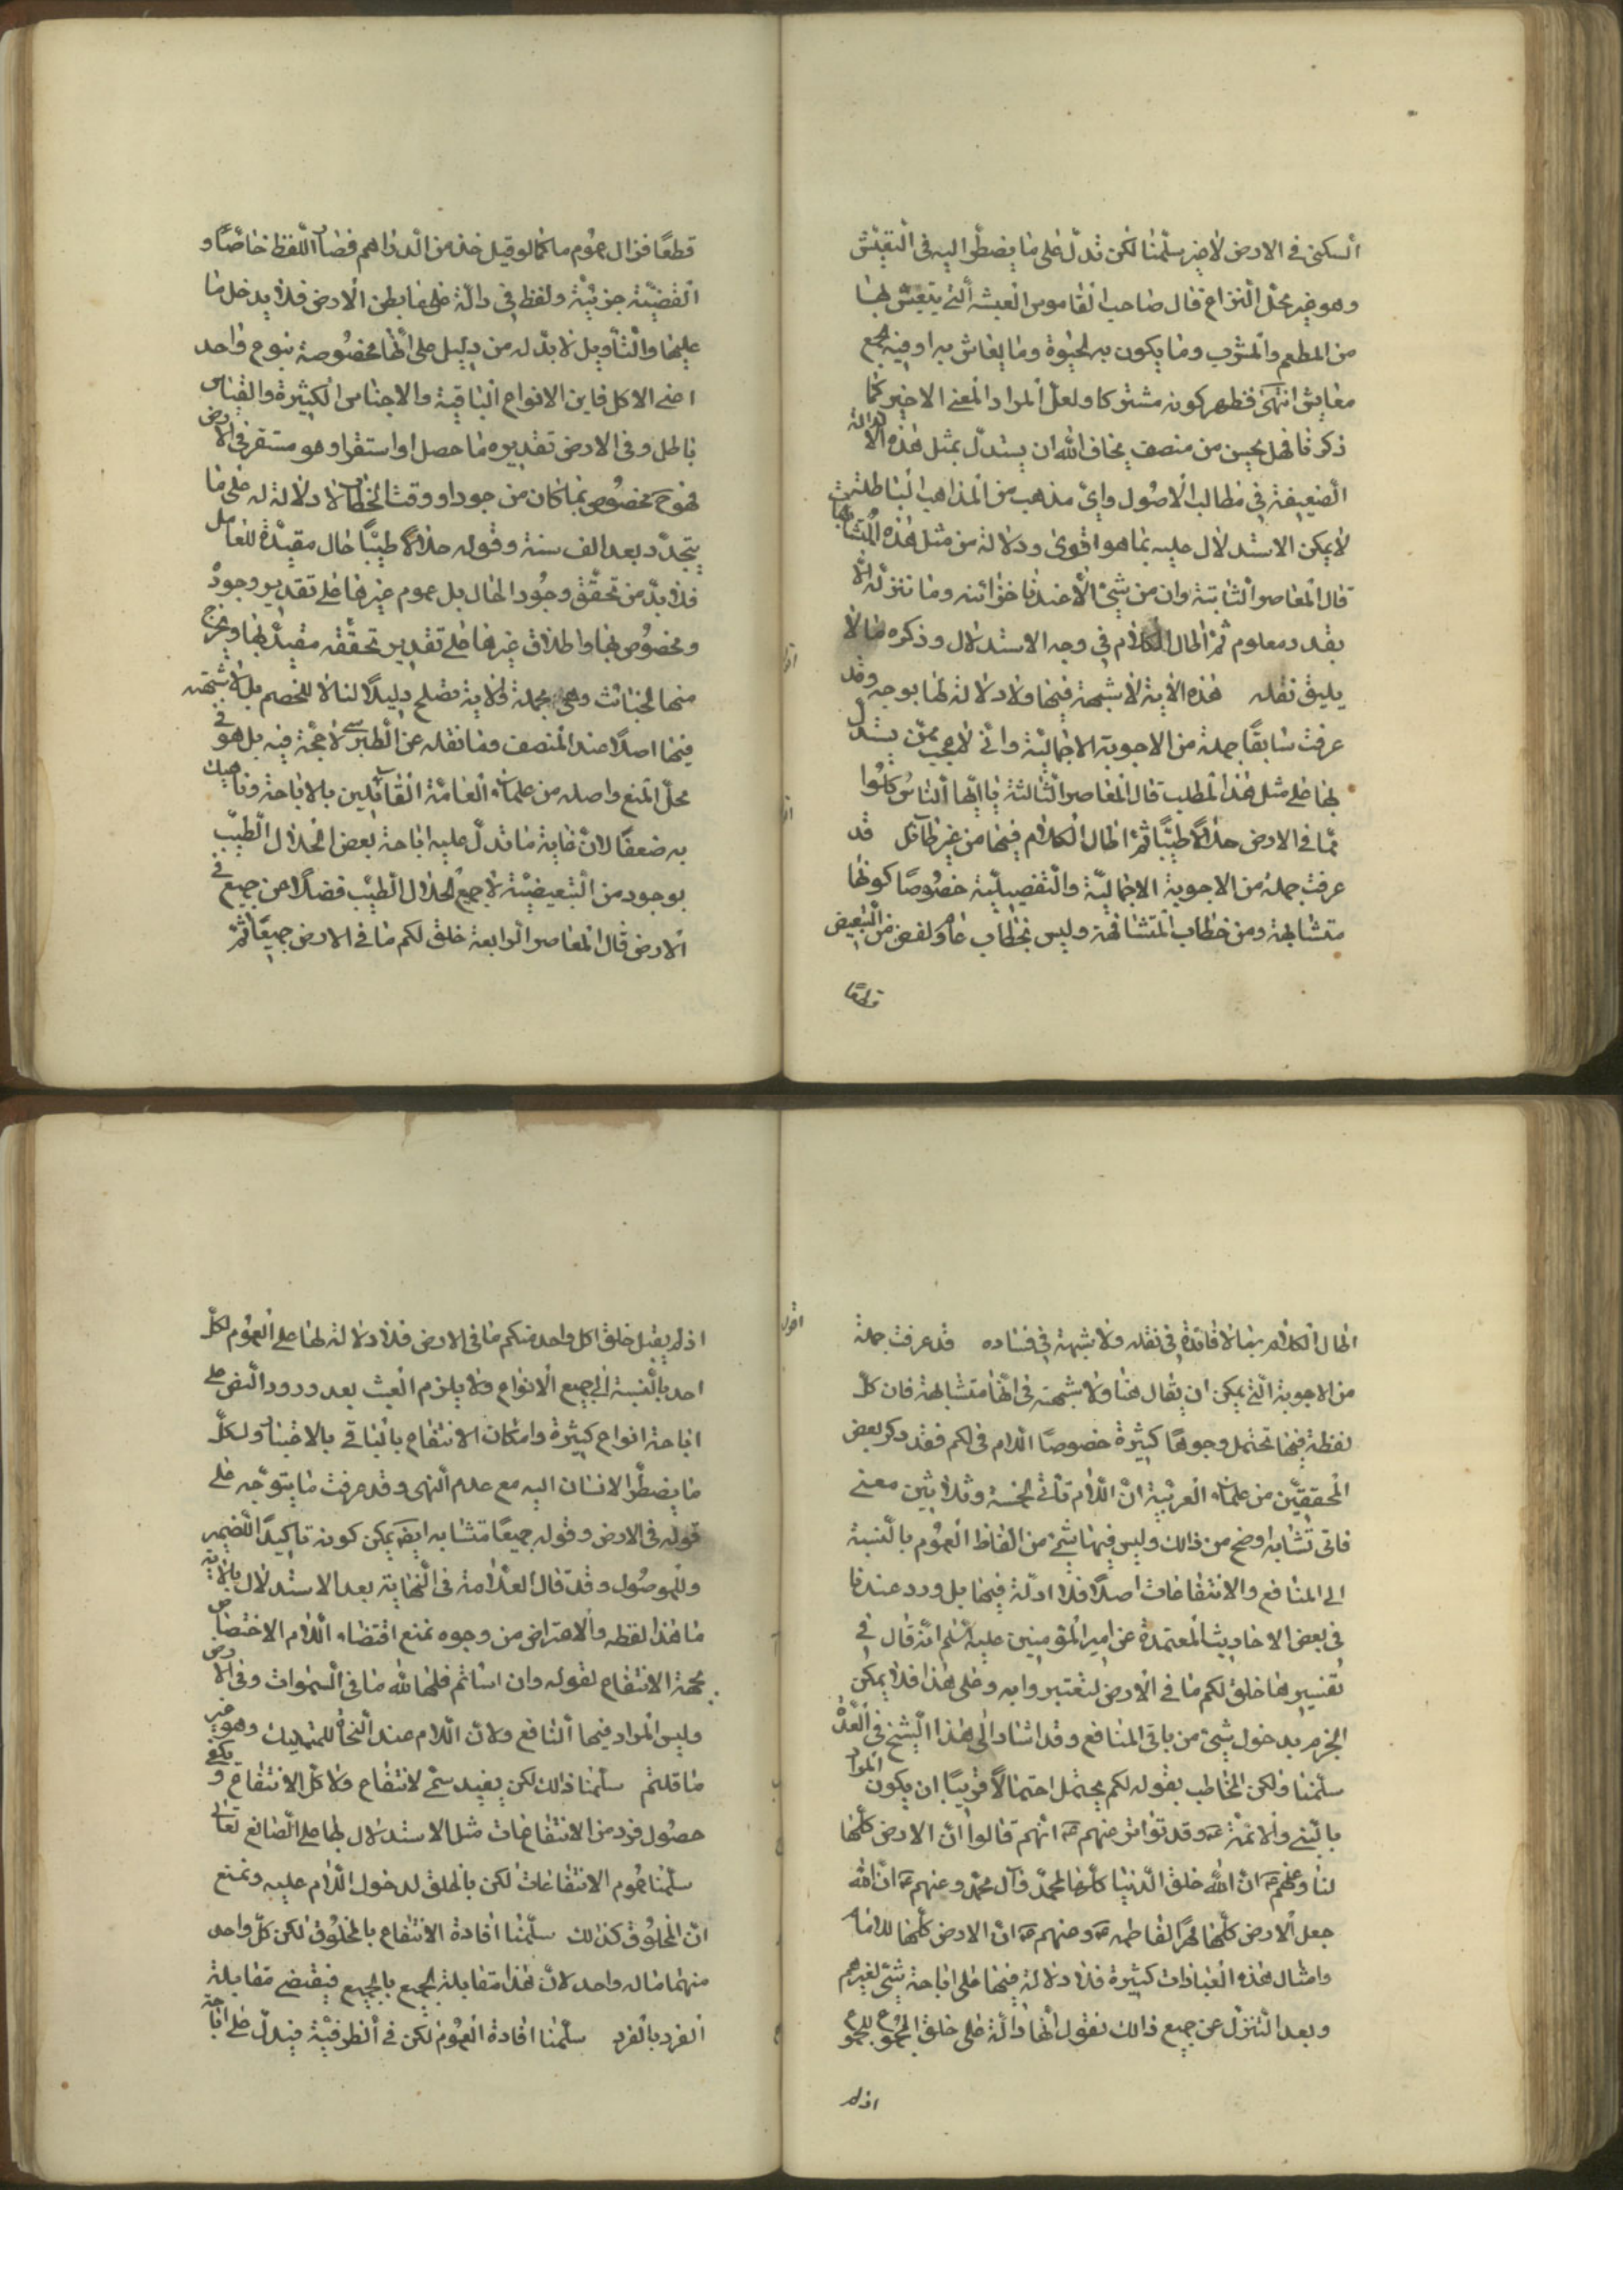 السكنى في الارض لا غير سلّمنا لكن تدلّ على ما يضطّر اليه في التعيّش
وهو غير محلّ النزاع قال صاحب القاموس العيشة الّتي يتعيّش بها
من المطعم والمشرب وما يكون به الحيوة وما يعاش به او فيه جمع
معايش انتهى فظهر كونه مشتركا ولعلّ المراد المعنى الاخير كما
ذكرنا فهل يحسن من منصف يخاف الله ان يستدلّ بمثل هذه الادلة
الضعيفة في مطالب الاصول واىّ مذهب من المذاهب الباطلة
لا يمكن الاستدلال عليه بما هو اقوى دلالة من مثل هذه المتشابهات
قال المعاصر الثانية وان من شىء الّا عندنا خزائنه وما ننزله الّا
بقدر معلوم ثمّ اطال الكلام في وجه الاستدلال وذكره ما لا
يليق نقله هذه الاية لا شبهة فيها ولا دلالة لها بوجه وقد
عرفت سابقًا جملة من الاجوبة الاجماليّة وانّى لاعجب ممّن يستدلّ
بها على مثل هذا المطلب قال المعاصر الثالثة يا ايّها النّاس كلوا
ممّا في الارض حلالًا طيّبًا ثمّ اطال الكلام فيها من غير طائل قد
عرفت جملة من الاجوبة الاجماليّة والتفصيليّة خصوصًا كونها
متشابهة ومن خطاب المشافهة وليس بخطاب عام ولفض من التبعيض
قطعًا
قطعًا فزال عموم ما كما لو قيل خذ من الدراهم فصار اللفظ خاصًّا و
القضيّة جزئيّة ولفظ في دالّة على ما بطن الارض فلا يدخل ما
عليها والتأويل لا بدّ له من دليل على انّها مخصوصة بنوع واحد
اعنى الاكل فاين الانواع الباقية والاجناس الكثيرة والقياس
باطل وفى الارض تقديره ما حصل او استقرا وهو مستقر في الارض
فهو ح مخصوص بما كان موجودا وقت الخطاب لا دلالة له على ما
يتجدّد بعد الف سنة وقوله حلالًا طيّبًا حال مقيّدة للعامل
فلا بدّ من تحقّق وجود الحال بل عموم غيرها على تقدير وجود
ومخصوص بها واطلاق غيرها على تقدير تحققه مقيّد بها ويخرج
منها الخبائث وهى مجملة فالاية تصلح دليلًا لنا لا للخصم بل لا شبهة
فيها اصلًا عند المنصف وما نقله عن الطبرسى لا حجّة فيه بل هو في
محلّ المنع واصله من علماء العامّة القائلين بالاباحة وناهيك
به ضعفًا لانّ غاية ما تدلّ عليه اباحة بعض الحلال الطيّب
بوجود من التبعيضيّة لا جميع الحلال الطيّب فضلًا عن جميع ما في
الارض قال المعاصر الرابعة خلق لكم ما في الارض جميعًا ثمّ
اطال الكلام بما لا فائدة في نقله ولا شبهة في فساده قد عرفت جملة
اقول
من الاجوبة الّتي يمكن ان يقال هنا ولا شبهة في انّها متشابهة فان كلّ
لفظة فيها تحتمل وجوهًا كثيرة خصوصًا اللام في لكم فقد ذكر بعض
المحققيّن من علماء العربيّة انّ اللّام تأتى لخمسة وثلاثين معنى
فاىّ تشابه اوضح من ذلك وليس فيها شىء من الفاظ العموم بالنسبة
الى المنافع والانتفاعات اصلًا فلا ادلّة فيها بل ورد عندنا
في بعض الاحاديث المعتمدة عن امير المؤمنين عليه السّلم انّه قال في
تفسيرها خلق لكم ما في الارض لتعتبروا به وعلى هذا فلا يمكن
الجزم بدخول شىء من باقى المنافع وقد اشار الى هذا الشيخ في العدّة
سلّمنا ولكن المخاطب بقوله لكم يحتمل احتمالًا قريبًا ان يكون المراد
بالنّبى والائمّة ع وقد تواتر عنهم ع انّهم قالوا انّ الارض كلّها
لنا وعنهم ع انّ الله خلق الدّنيا كلّها لمحمّد وآل محمّد وعنهم ع انّ الله
جعل الارض كلّها مهرًا لفاطمة ع وعنهم ع انّ الارض كلّها للامام
وامثال هذه العبارات كثيرة فلا دلالة فيها على اباحة شىء لغيرهم
وبعد التنزّل عن جميع ذلك نقول انّها دالّة على خلق المجموع للمجموع
اذ لم
اذ لم يقل خلق لكل واحد منكم ما في الارض فلا دلالة لها على العموم لكلّ
احد بالنّسبة الى جميع الانواع ولا يلزم العبث بعد ورود النصّ على
اباحة انواع كثيرة وامكان الانتفاع بالباقى بالاعتبار ولكلّ
ما يضطّر الانسان اليه مع عدم النّهى وقد عرفت ما يتوجّه على
قوله في الارض وقوله جميعًا متشابه ايضًا يمكن كونه تأكيدًا للضمير
وللموصول وقد قال العلّامة في النّهاية بعد الاستدلال بالاية
ما هذا لفظه والاعتراض من وجوه نمنع اقتضاء اللّام الاختصاص
بجهة الانتفاع لقوله وان اسأتم فلها لله ما في السّموات وفى الارض
وليس المراد فيهما النّافع ولانّ اللّام عند النّحاة للتمليك وهو غير
ما قلتم سلّمنا ذلك لكن يفيد مسمّى الانتفاع ولا كلّ الانتفاع ويكفى
حصول فرد من الانتفاعات مثل الاستدلال بها على الصّانع تعالى
سلّمنا عموم الانتفاعات لكن بالخلق لدخول اللّام عليه ونمنع
انّ المخلوق كذلك سلّمنا افادة الانتفاع بالمخلوق لكن كلّ واحد
منهما ماله واحد لانّ هذا مقابلة الجمع بالجمع فيقتضى مقابلة
الفرد بالفرد سلّمنا افادة العموم لكن في الظرفيّة فيدلّ على اباحة